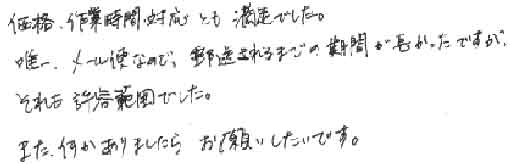 価格、作業時間、対応とも満足でした。
唯一、メール便なので、郵送されるまでの期間が長かったですが、
それも許容範囲でした。
また、何かありましたらお願いしたいです。